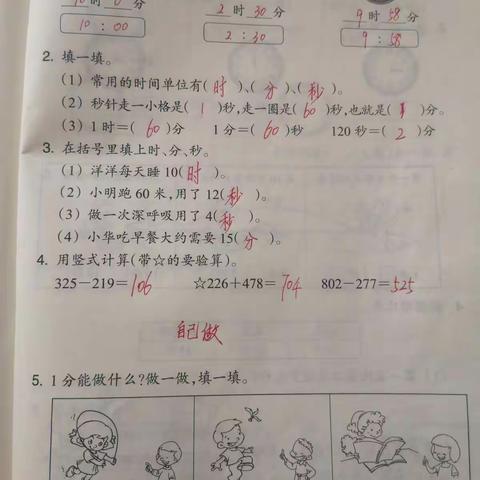 10时0分 2时30分 9时58分
10:00 2:30 9:58
2. 填一填。
(1) 常用的时间单位有(时)、(分)、(秒)。
(2) 秒针走一小格是(1)秒,走一圈是(60)秒,也就是(1)分。
(3) 1时=(60)分 1分=(60)秒 120秒=(2)分
3. 在括号里填上时、分、秒。
(1) 洋洋每天睡10(时)。
(2) 小明跑60米,用了12(秒)。
(3) 做一次深呼吸用了4(秒)。
(4) 小华吃早餐大约需要15(分)。
4. 用竖式计算(带☆的要验算)。
325－219=106 ☆226+478=704 802－277=525
自己做
5. 1分能做什么?做一做,填一填。